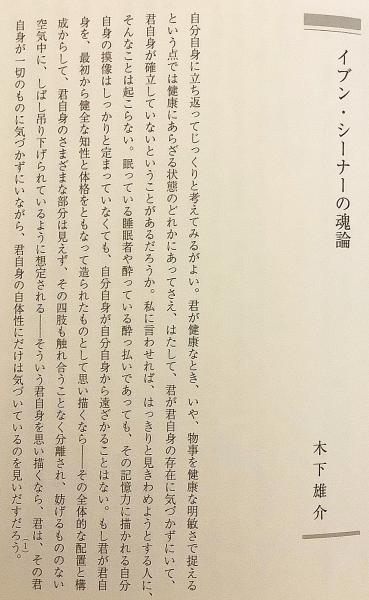 イブン・シーナーの魂論
木下雄介
自分自身に立ち返ってじっくりと考えてみるがよい。君が健康なとき、いや、物事を健康な明敏さで捉える
という点では健康にあらざる状態のどれかにあってさえ、はたして、君が君自身の存在に気づかずにいて、
君自身が確立していないということがあるだろうか。私に言わせれば、はっきりと見きわめようとする人に、
そんなことは起こらない。眠っている睡眠者や酔っている酔っ払いであっても、その記憶力に描かれる自分
自身の摸像はしっかりと定まっていなくても、自分自身が自分自身から遠ざかることはない。もし君が君自
身を、最初から健全な知性と体格をともなって造られたものとして思い描くなら――その全体的な配置と構
成からして、君自身のさまざまな部分は見えず、その四肢も触れ合うことなく分離され、妨げるもののない
空気中に、しばし吊り下げられているように想定される――そういう君自身を思い描くなら、君は、その君
自身が一切のものに気づかずにいながら、君自身の自体性にだけは気づいているのを見いだすだろう。(1)